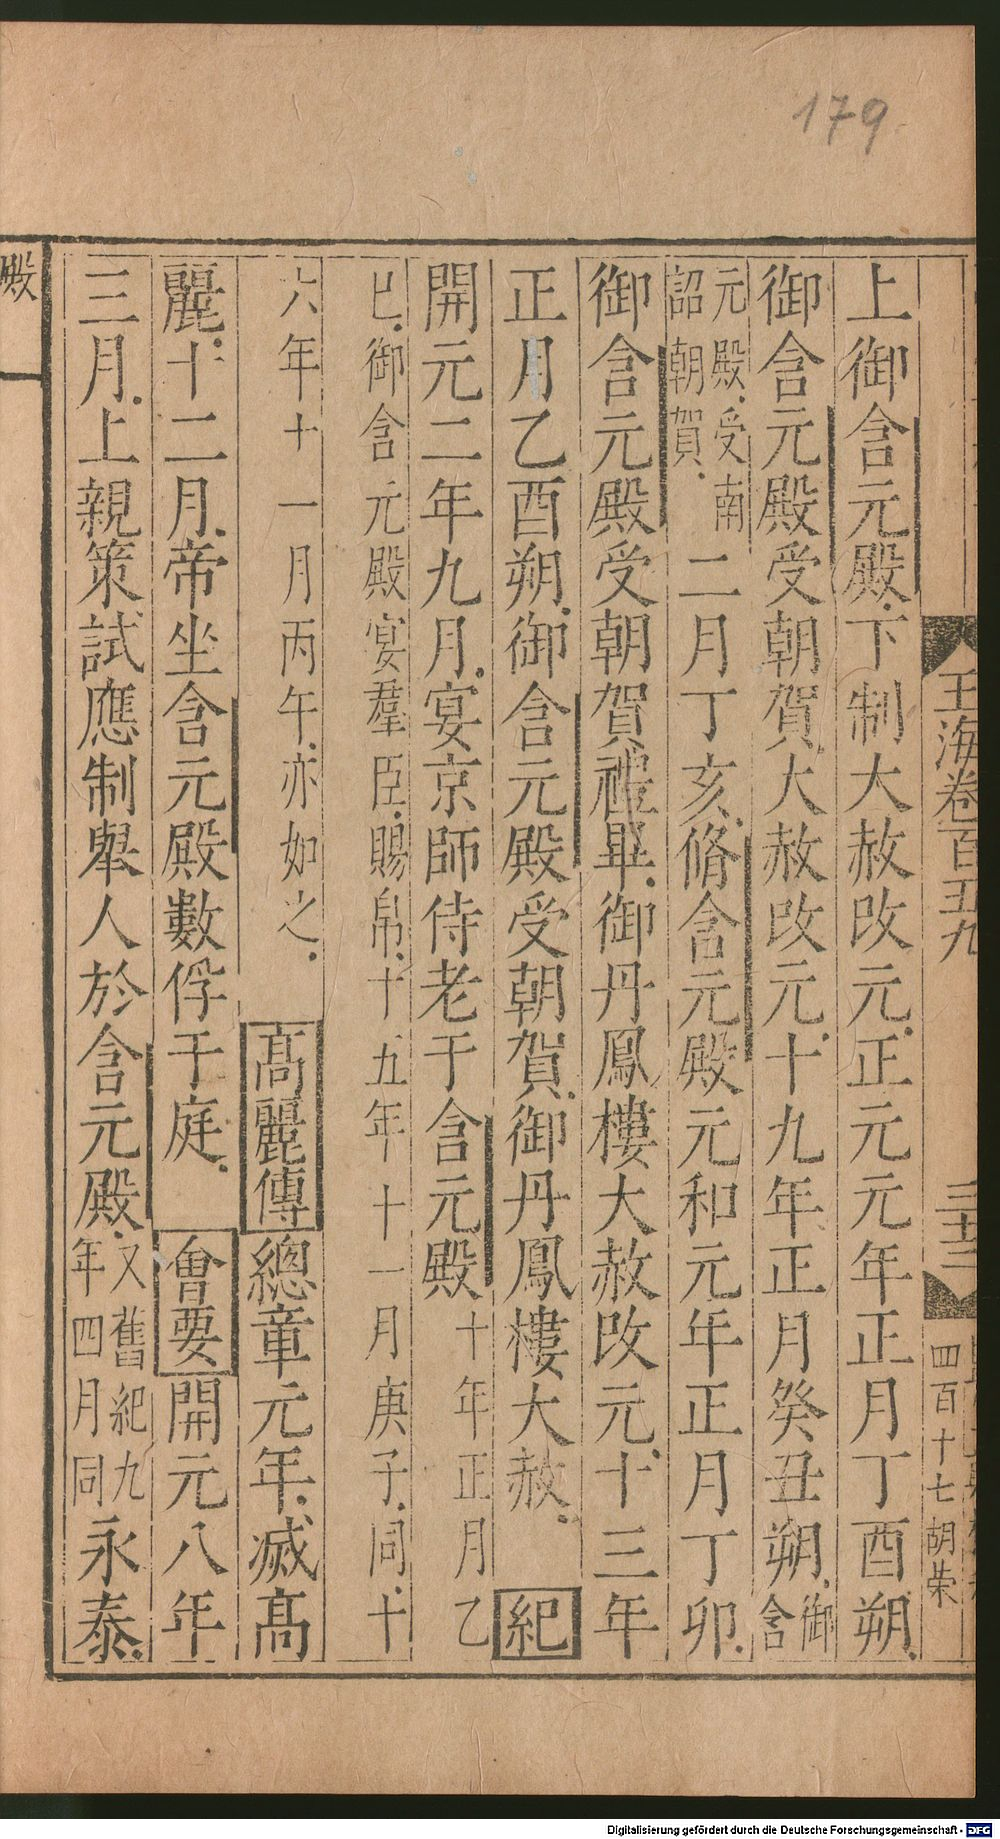 179
玉海卷百五九
三十三
四百十七 胡荣
上御含元殿下制大赦改元正元元年正月丁酉朔
御含元殿受朝賀大赦改元十九年正月癸丑朔御含
元殿受南詔朝賀二月丁亥脩含元殿元和元年正月丁卯
御含元殿受朝賀禮畢御丹鳳樓大赦改元十三年
正月乙酉朔御含元殿受朝賀御丹鳳樓大赦 紀
開元二年九月宴京師侍老于含元殿十年正月乙
巳御含元殿宴羣臣賜帛十五年十一月庚子同十
六年十一月丙午亦如之
高麗傳總章元年滅高
麗十二月帝坐含元殿數俘于庭 會要開元八年
三月上親策試應制舉人於含元殿又舊紀九年四月同永泰
殿
Digitalisierung gefördert durch die Deutsche Forschungsgemeinschaft - DFG